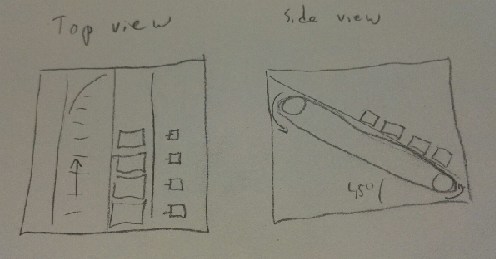 Top view
Side view
45°